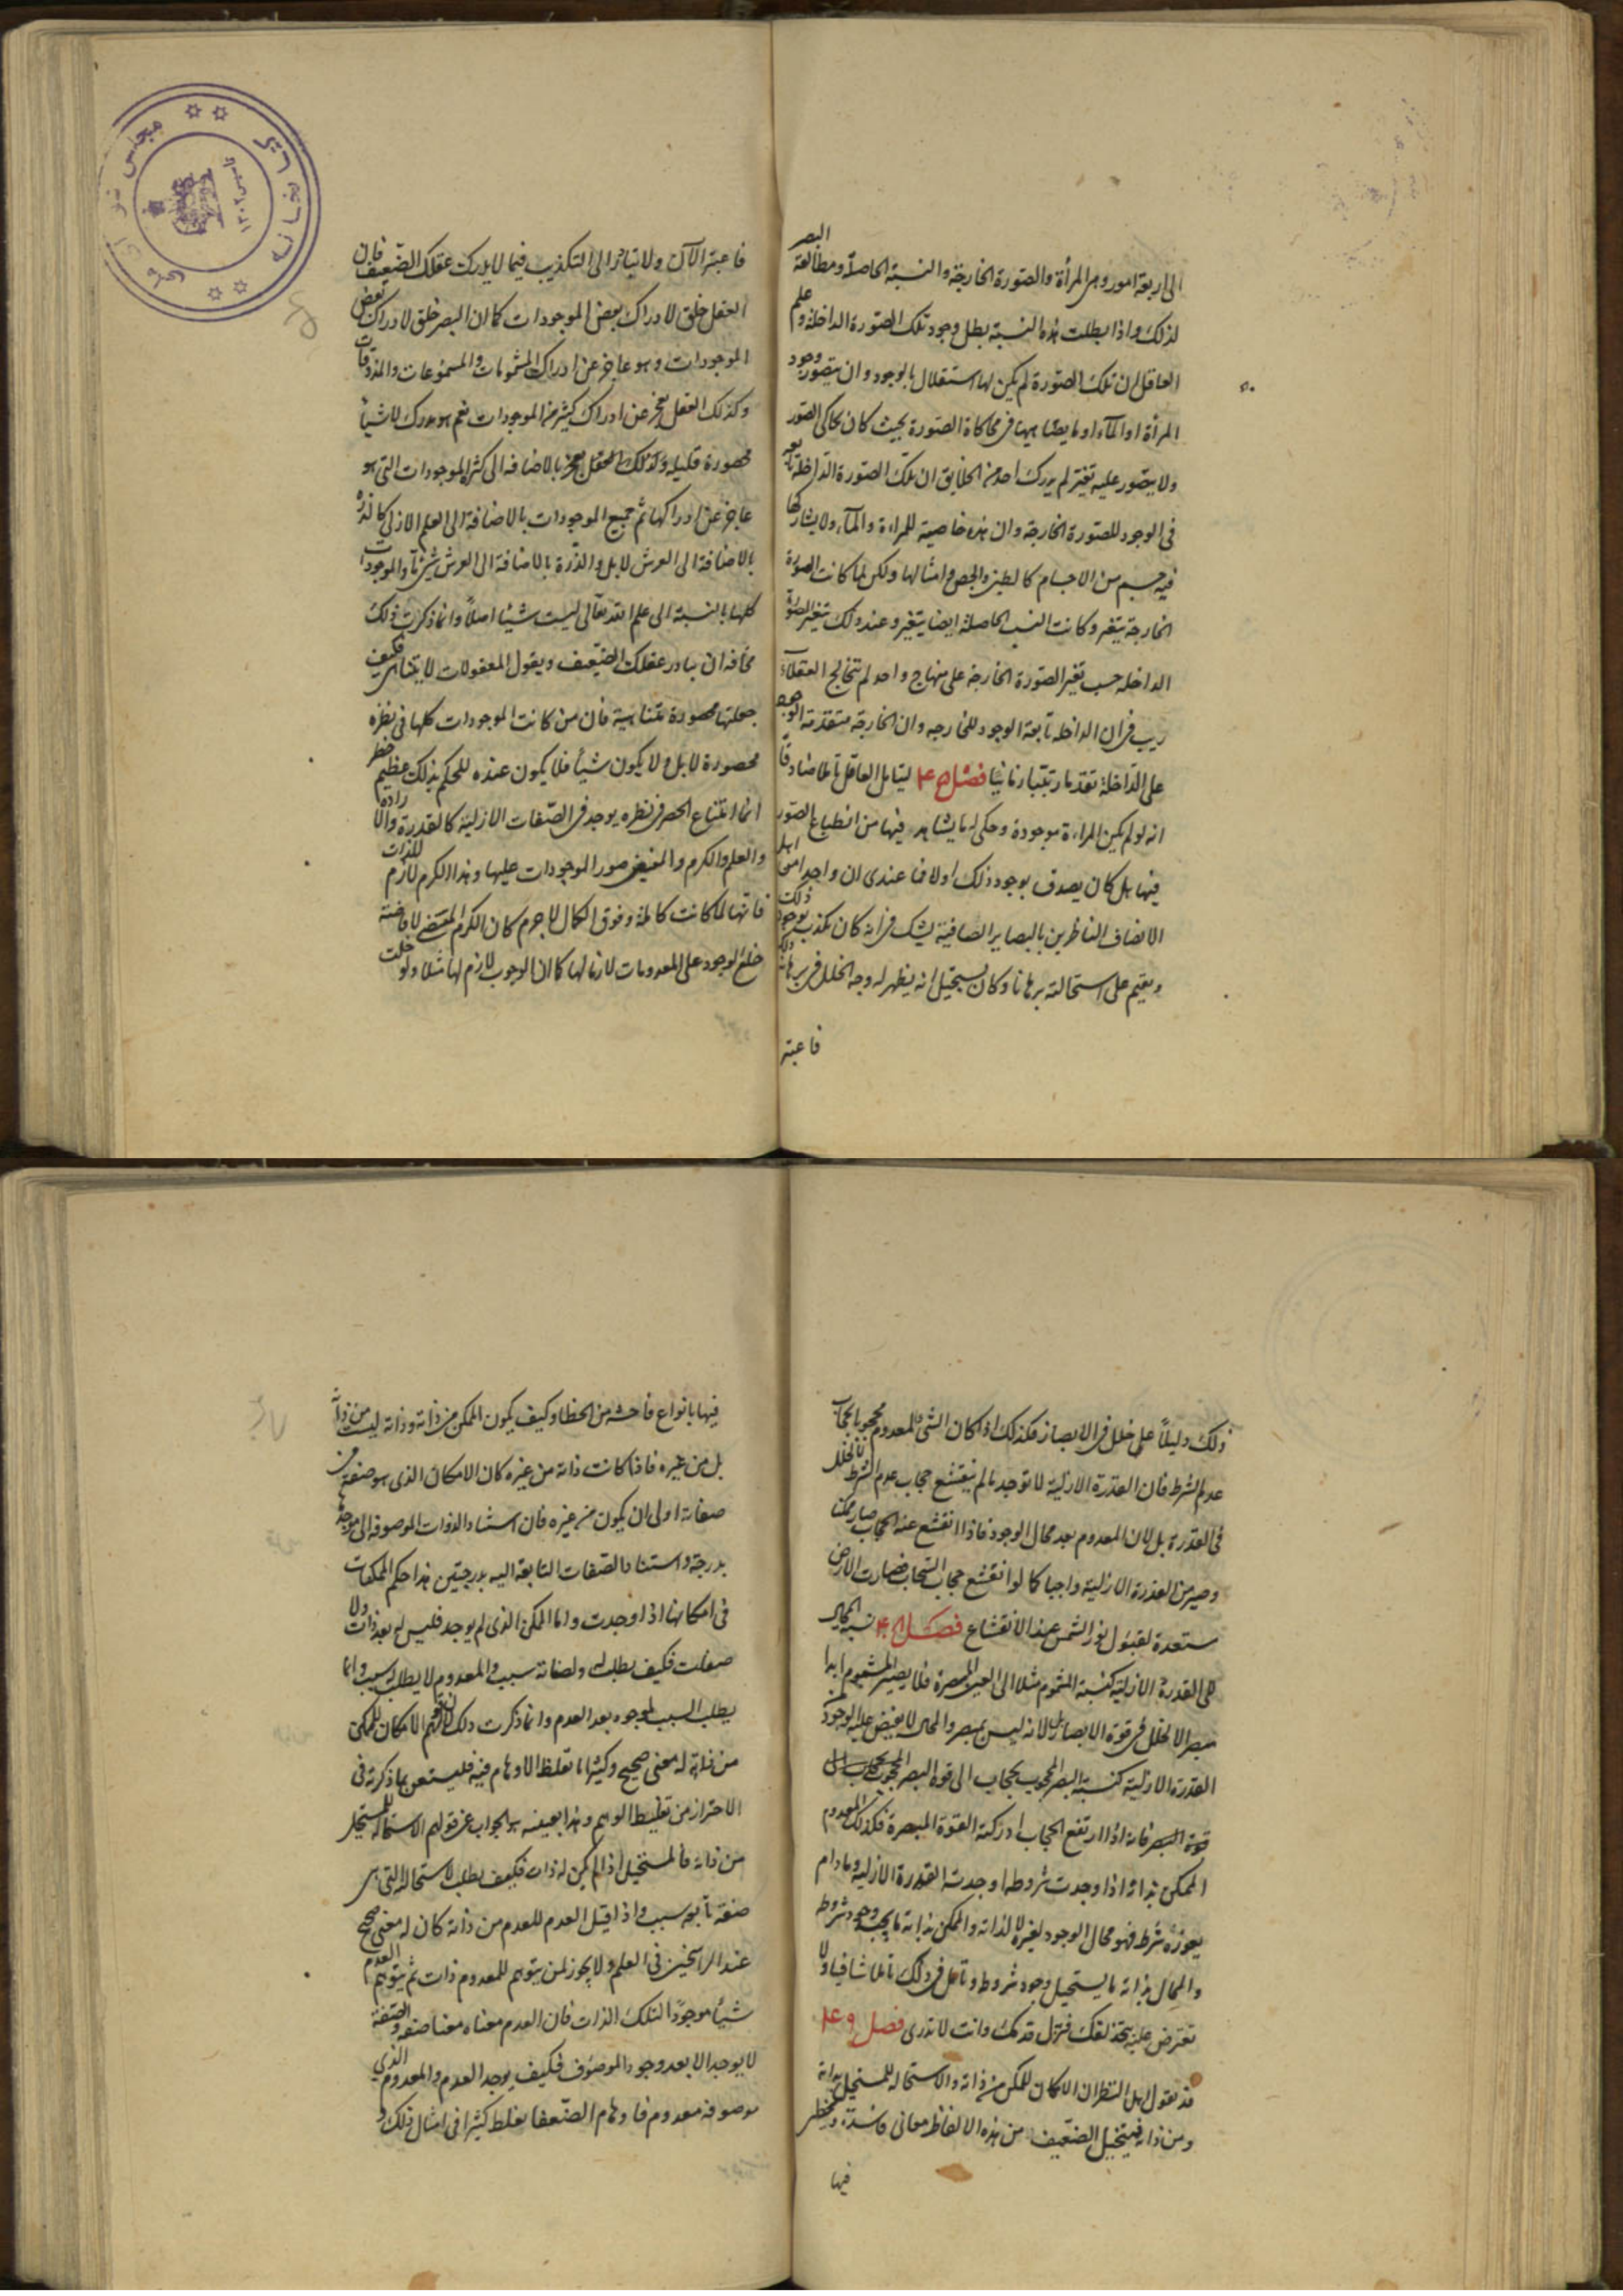 الى اربعة امور وهى المرأة والصورة الخارجة والنسبة الحاصلة ومطالعة البصر
لذلك واذا بطلت هذه النسبة بطل وجود تلك الصورة الداخلة وعلم
العاقل ان تلك الصورة لم يكن لها استقلال بالوجود وان يتصور وجود
المرأة او المآء او ما يضاهيها فى محاكاة الصورة بحيث كان يحاكى الصور
ولا يتصور عليه تغير لم يدرك احد من الخلايق ان تلك الصورة الداخلة تابعة
فى الوجود للصورة الخارجة وان هذه خاصية للمراءة والمآء ولا يشاركها
فيه جسم من الاجسام كالطين والجص وامثالها ولكن لما كانت الصورة
الخارجة يتغير وكانت النسب الحاصلة ايضا يتغير وعند ذلك يتغير الصورة
الداخلة حسب تغير الصورة الخارجة على منهاج واحد لم تتخالج العقلآء
ريب فى ان الداخلة تابعة الوجود للخارجة وان الخارجة متقدمة الوجود
على الداخلة تقدما رتبتيا زمانيا فصل ليتامل العاقل تأملا صادقا
انه لو لم يكن المراءة موجودة وحكى له ما يشاهد فيها من انطباع الصور
فيها هل كان يصدق بوجود ذلك اولا فما عندى ان واحدا من اهل
الانصاف الناظرين بالبصاير الصافية يشك فى انه كان يكذب بوجود ذلك
ويقيم على استحالته برهانا وكان يستحيل انه يظهر له وجه الخلل فى برهانه ذلك
فاعتبر
فاعتبر الآن ولا تبادر الى التكذيب فيما لا يدركه عقلك الضعيف فان
العقل خلق لادراك بعض الموجودات كما ان البصر خلق لادراك بعض
الموجودات وهو عاجز عن ادراك المشمومات والمسموعات والمذوقات
وكذلك العقل يعجز عن ادراك كثير من الموجودات نعم هو مدرك لاشيآء
محصورة قليلة وكذلك العقل يعجز بالاضافه الى كثرة الموجودات التى هو
عاجز عن ادراكها ثم جميع الموجودات بالاضافة الى العلم الازلى كالذرة
بالاضافة الى العرش لا بل والذرة بالاضافة الى العرش شئ ما والموجودات
كلها بالنسبة الى علم الله تعالى ليست شيئا اصلا وانما ذكرت ذلك
مخافة ان يبادر عقلك الضعيف ويقول المعقولات لا يتناهى فكيف
جعلتها محصورة متناهية فان من كانت الموجودات كلها فى نظره
محصورة لا بل ولا يكون شيأ فلا يكون عنده للحكم بذلك عظيم خطر
انما امتناع الحصر فى نظره يوجد فى الصفات الازلية كالقدرة والارادة
والعلم والكرم والمفيض صور الموجودات عليها وهذا الكرم لازم للذات
فانها لما كانت كاملة وفوق الكمال لاجرم كان الكرم المقتضى لافاضة
خلع الوجود على المعدومات لازما لها كما ان الوجوب لازم لها مثلا ولو خلت
ذلك دليلاً على خلل فى الابصار فكذلك اذا كان الشئ المعدوم محجوبا بحجاب
عدم الشرط فان القدرة الازلية لا توجد ما لم ينقشع حجاب عدم الشرط لا لخلل
فى القدرة بل لان المعدوم بعد محال الوجود فاذا انقشع عنه الحجاب صار ممكنا
وصير من القدرة الازلية واجبا كما لو انقشع حجاب السحاب فصارت الارض
مستعدة لقبول نور الشمس عند الانقشاع فصل نسبة المحال
الى القدرة الازلية كنسبة المشموم مثلا الى العين المبصرة فلا يصير المشموم ابدا
مبصرا لا لخلل فى قوة الابصار بل لانه ليس بمبصر والمحال لا يفيض عليه الوجود من
القدرة الازلية كنسبة البصر المحجوب بحجاب الى قوة البصر المحجوب بحجاب الى
قوة البصر فانه اذا ارتفع الحجاب ادركته القوة المبصرة فكذلك المعدوم
الممكن بذاته اذا وجدت شروطه اوجدته القدرة الازلية وما دام
يعوزه شرط فهو محال الوجود لغيره لا لذاته والممكن بذاته ما يجب وجود شروطه
والمحال بذاته ما يستحيل وجود شروطه وتأمل فى ذلك تأملا شافيا ولا
تعترض عليه بتحذلقك فتزل قدمك وانت لا تدرى فصل
قد يقول اهل النظر ان الامكان للممكن من ذاته والاستحالة للمستحيل بذاته
ومن ذاته فيتخيل الضعيف من هذه الالفاظ معانى فاسدة ويخطر
فيها
فيها بانواع فاحشة من الخطا وكيف يكون الممكن من ذاته وذاته ليست من ذاته
بل من غيره فاذا كانت ذاته من غيره كان الامكان الذى هو صفة من
صفاته اولى ان يكون من غيره فان استناد الذوات الموصوفة الى موجدها
بدرجة واستناد الصفات التابعة اليه بدرجتين هذا حكم الممكنات
فى امكانها اذا وجدت واما الممكن الذى لم يوجد فليس له بعد ذات ولا
صفات فكيف يطلب له ولصفاته سبب والمعدوم لا يطلب له سبب وانما
يطلب السبب لوجود بعد العدم وانما ذكرت ذلك لان قولهم الامكان للممكن
من ذاته له معنى صحيح وكثيرا ما تغلط الاوهام فيه فليستعن بما ذكرته فى
الاحتراز من تغليط الوهم وهذا بعينه هو الجواب عن قولهم الاستحالة للمستحيل
من ذاته فالمستحيل اذا لم يكن له ذات فكيف يطلب لاستحالته التى هى
صفة تابعه سبب واذا قيل العدم للعدم من ذاته كان له معنى صحيح
عند الراسخين فى العلم ولا يجوز لمن يتوهم للمعدوم ذات ثم يتوهم العدم
شيأ موجودا لتلك الذات فان العدم معناه معنا صفة والصفة
لا يوجد الا بعد وجود الموصوف فكيف يوجد العدم والمعدوم الذى
موصوفه معدوم فاوهام الضعفا يغلط كثيرا فى امثال ذلك